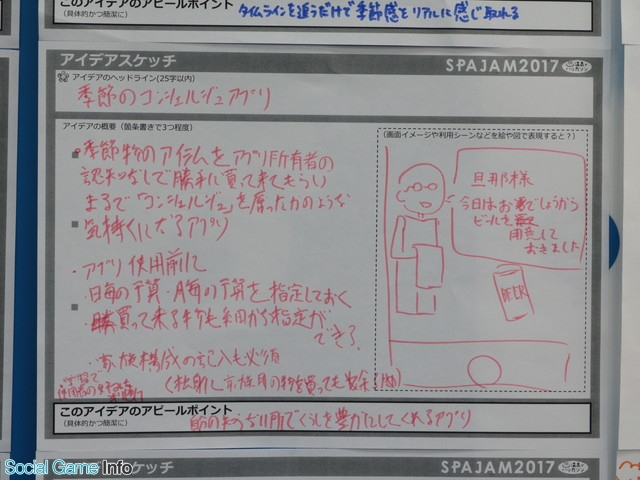 このアイデアのアピールポイント
(具体的かつ簡潔に)
タイムラインを追うだけで季節感をリアルに感じ取れる
アイデアスケッチ
SPAJAM2017
アイデアのヘッドライン(25字以内)
季節のコンシェルジュアプリ
アイデアの概要(箇条書きで3つ程度)
季節物のアイテムをアプリ所有者の
認知なしで勝手に買って来てもらい
まるで「コンシェルジュ」を雇ったかのような
気持ちになるアプリ
・アプリ使用前に
・日毎の予算・月毎の予算を指定しておく
買って来る
指定が
できる
・家族構成の記入も必須
(画面イメージや利用シーンなどを絵や図で表現すると?)
旦那様
今日はお暑いでしょうから
ビールを
用意して
おきました
BEER
このアイデアのアピールポイント
(具体的かつ簡潔に)
自分の知らない所でくらしを豊かにしてくれるアプリ
アイデアスケッチ
SPAJAM2017
Social Game Info